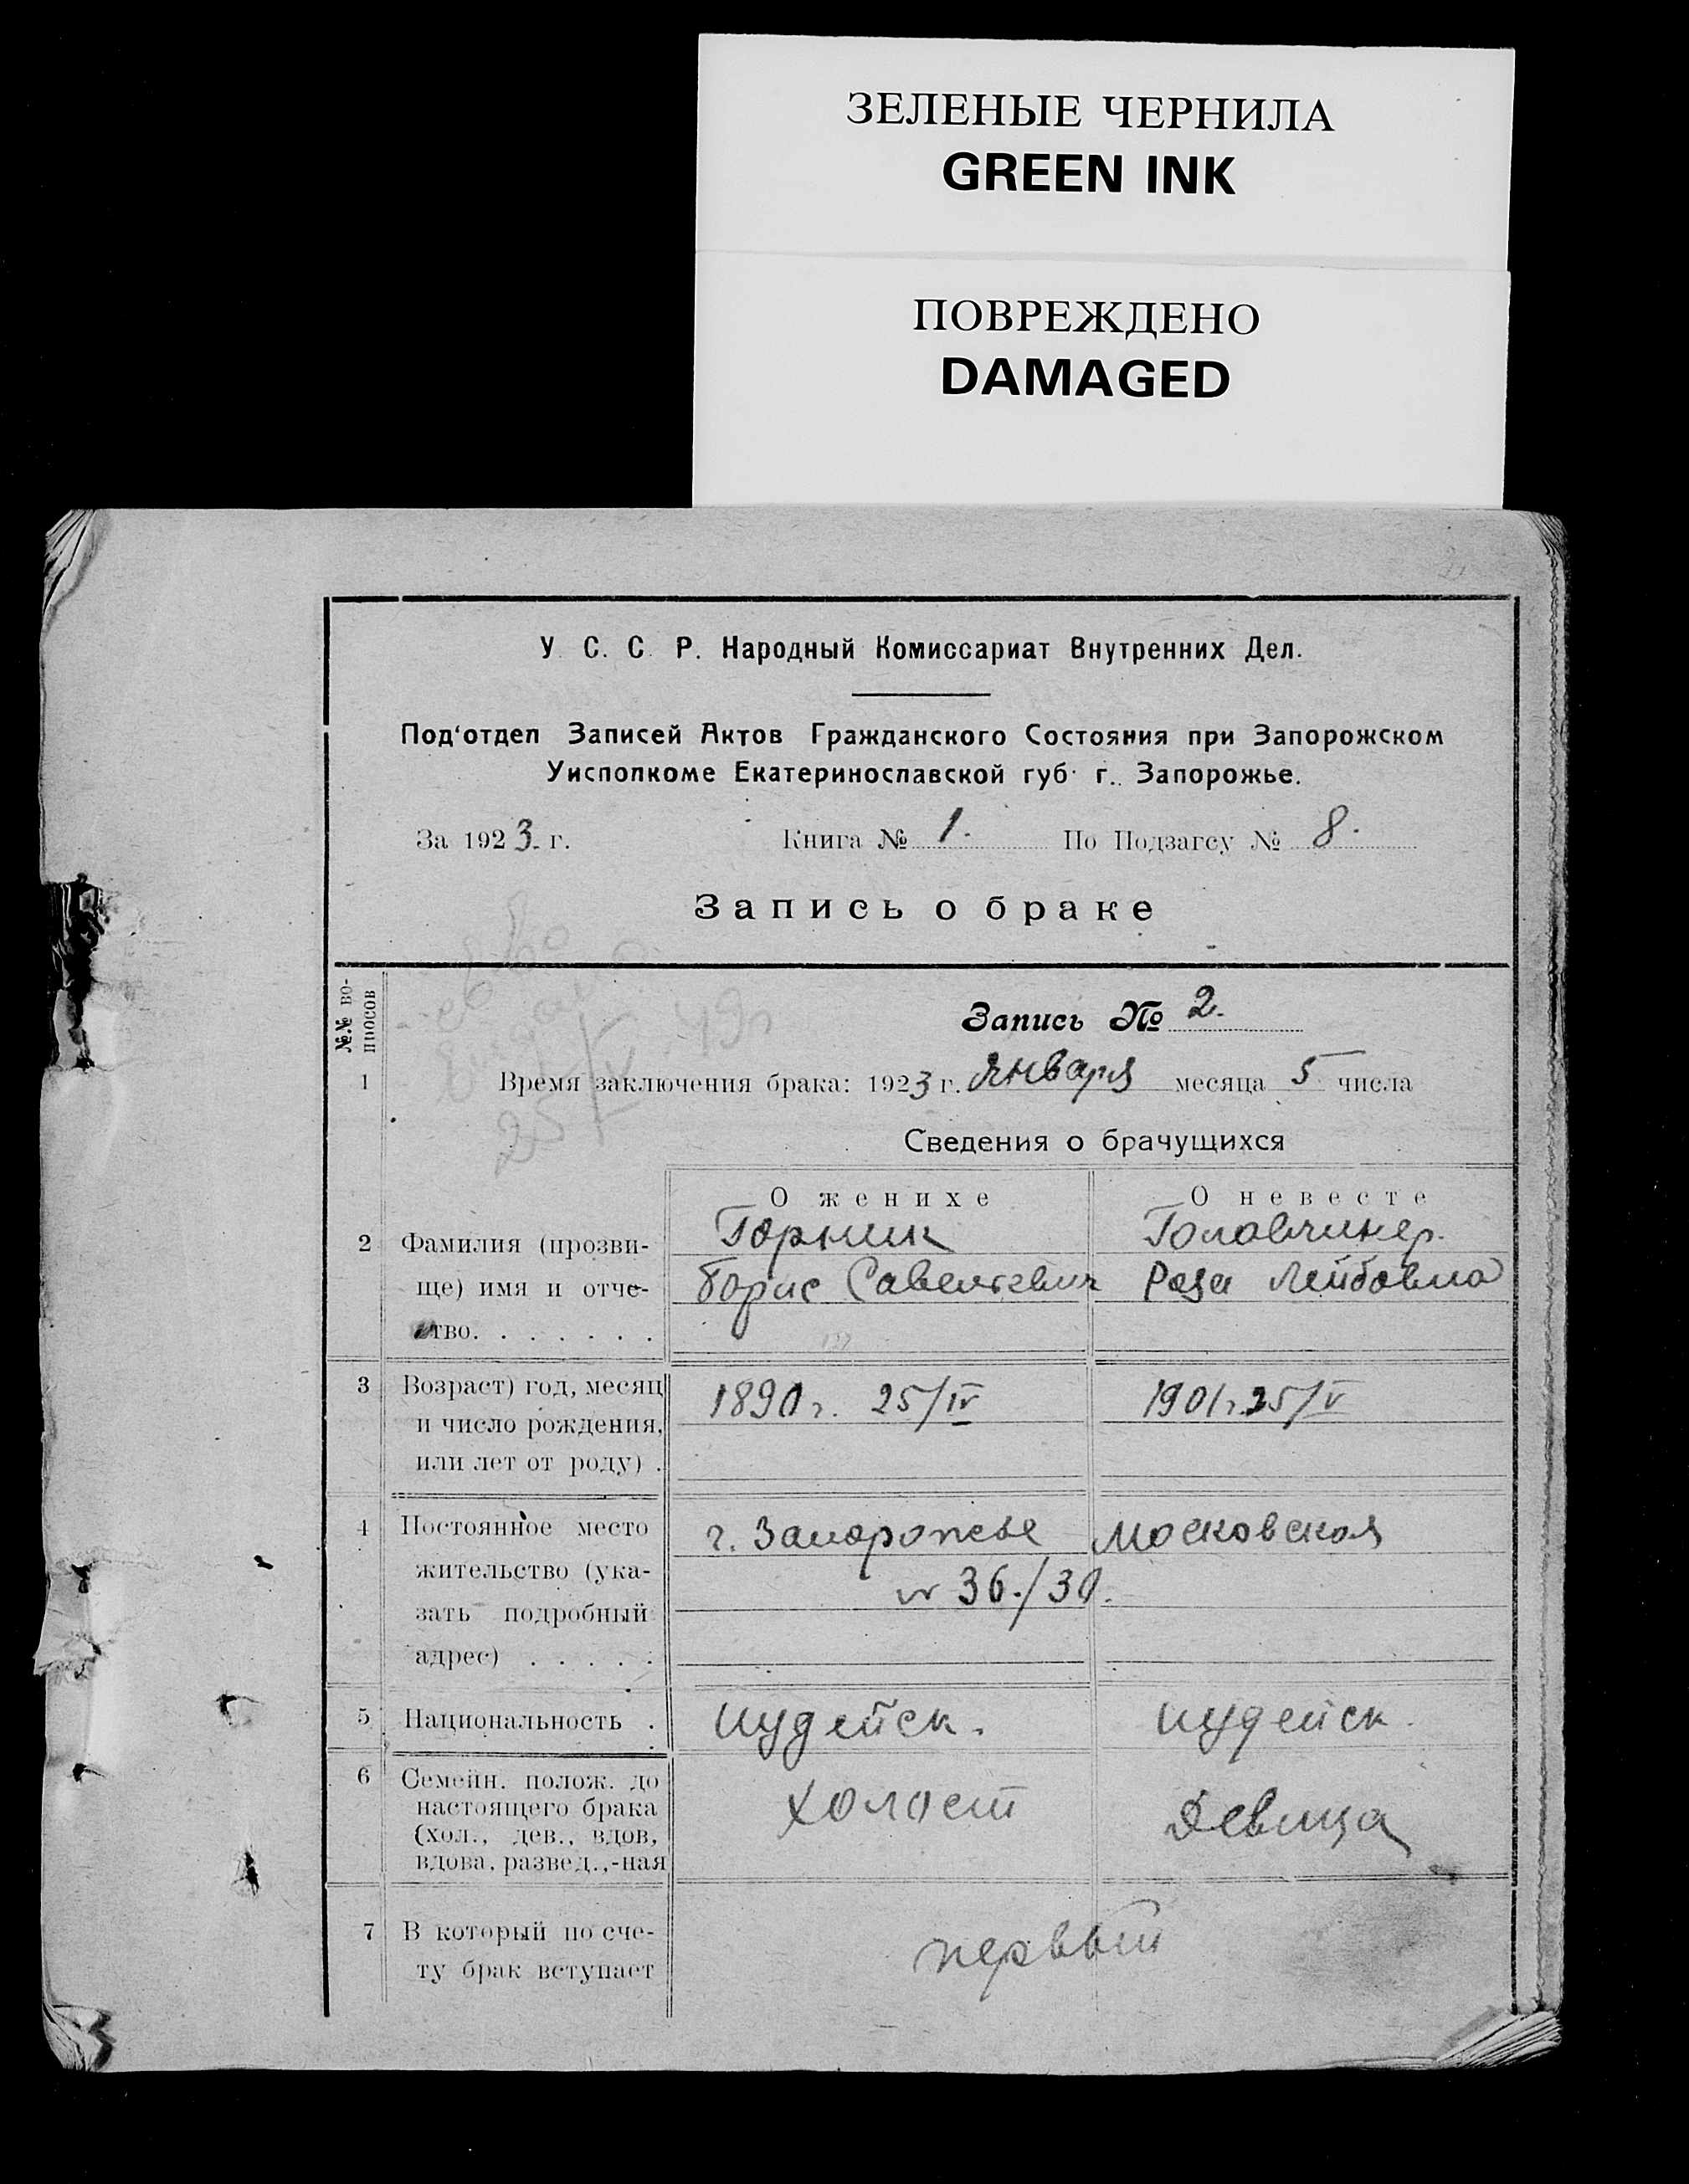 ЗЕЛЕНЫЕ ЧЕРНИЛА
GREEN INK
ПОВРЕЖДЕНО
DAMAGED
У. С. С. Р. Народный Комиссариат Внутренних Дел.
Под'отдел Записей Актов Гражданского Состояния при Запорожском
Уисполкоме Екатеринославской губ. г. Запорожье.
За 1923 г. Книга № 1. По Подзагсу № 8.
Запись о браке
№№ во-
просов
Запись № 2.
1 Время заключения брака: 1923 г. Января месяца 5 числа
25/V 49г
Сведения о брачущихся
О женихе О невесте
2 Фамилия (прозви- Горник Головчинер.
ще) имя и отче- Борис Савельевич Роза Лейбовна
ство. . . . . . .
3 Возраст) год, месяц 1890 г. 25/IV 1901 г. 25/V
и число рождения,
или лет от роду) .
4 Постоянное место г. Запорожье Московская
жительство (ука- № 36./30.
зать подробный
адрес) . . . . .
5 Национальность . иудейск. иудейск.
6 Семейн. полож. до холост девица
настоящего брака
(хол., дев., вдов,
вдова, развед.,-ная
7 В который по сче- первый
ту брак вступает